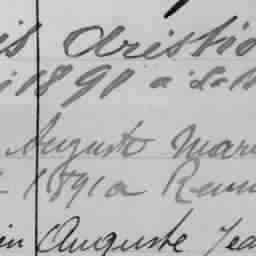 is Aristi
1891 a
Auguste Mari
1891 a Renn
in Auguste Jea